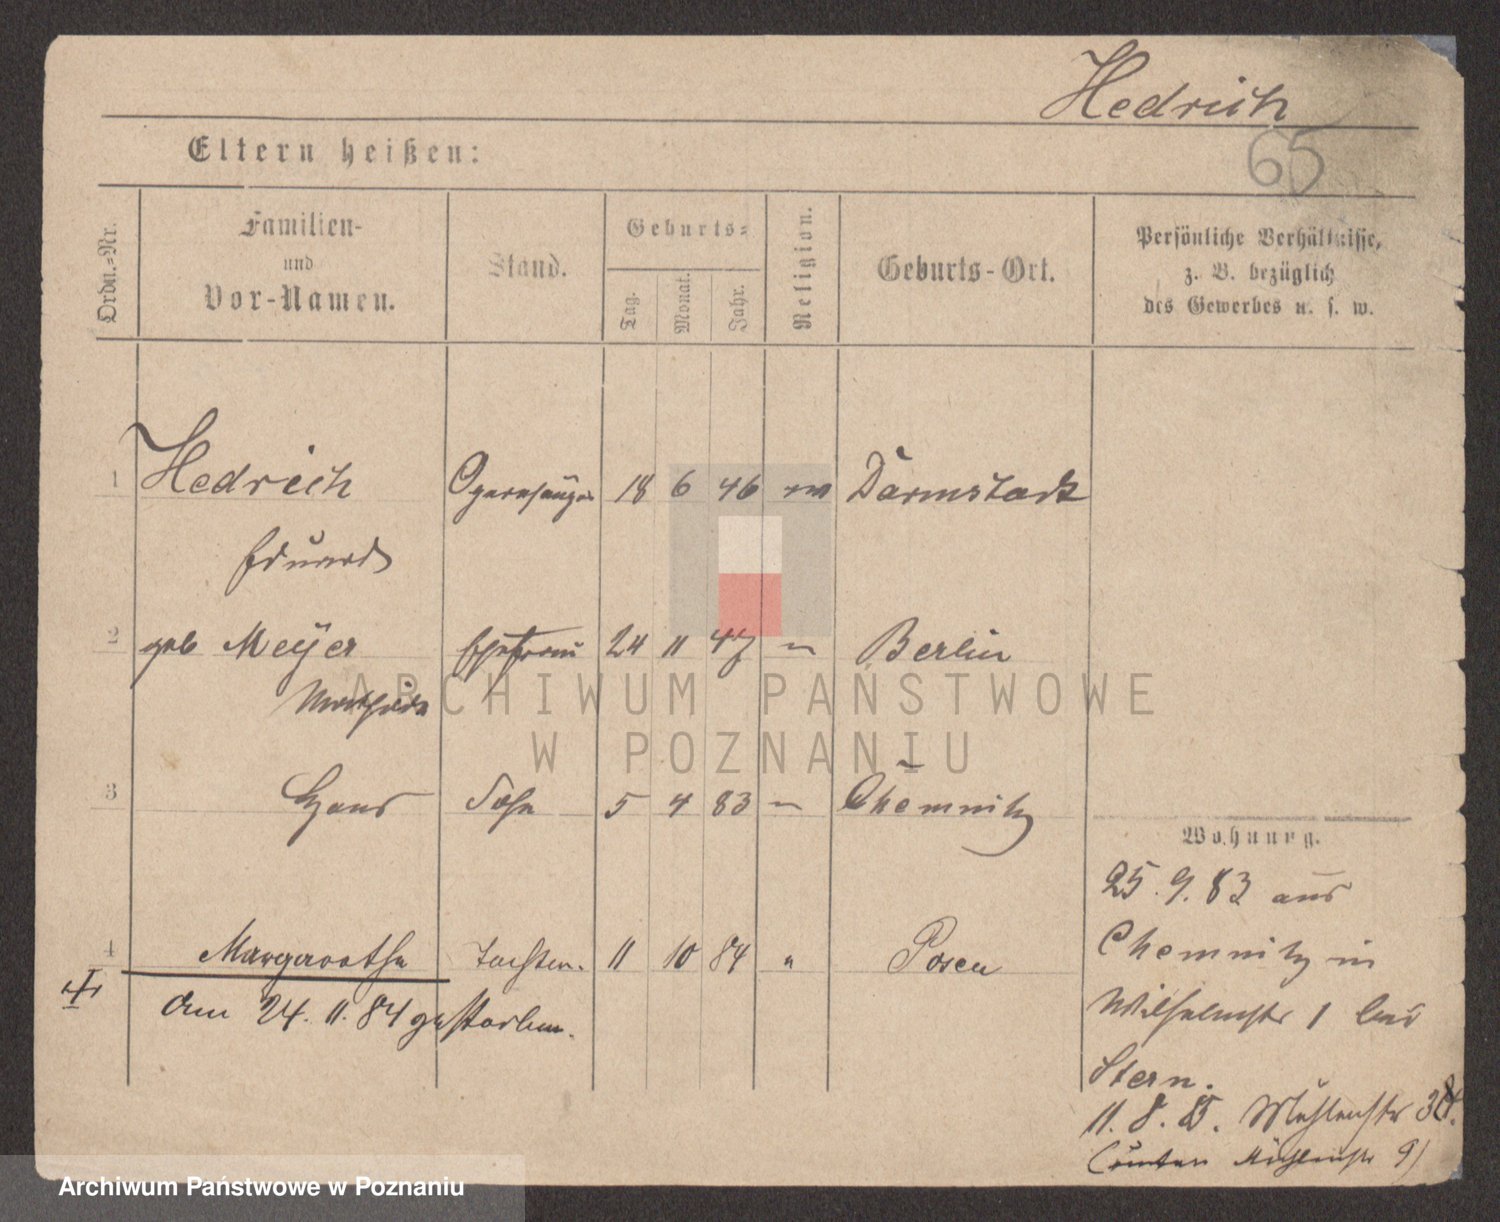 Hedrich
65
Eltern heißen:
Ordn.=Nr.
Familien-
und
Vor-Namen.
Stand.
Geburts=
Tag.
Monat.
Jahr.
Religion.
Geburts-Ort.
Persönliche Verhältnisse,
z. B. bezüglich
des Gewerbes u. s. w.
1 Hedrich Opernsänger 18 6 46 ev Darmstadt
Eduard
2 geb Meyer Ehefrau 24 11 47 " Berlin
Mathilde
3 Hans Sohn 5 4 83 " Chemnitz
4 Margarethe Tochter. 11 10 84 " Posen
den 24. 11. 84 gestorben.
Wohnung.
25. 9. 83 aus
Chemnitz in
Wilhelmstr 1 bei
Stern.
11. 8. 85. Mühlenstr
Mühlenstr 9)
ARCHIWUM PAŃSTWOWE
W POZNANIU
Archiwum Państwowe w Poznaniu